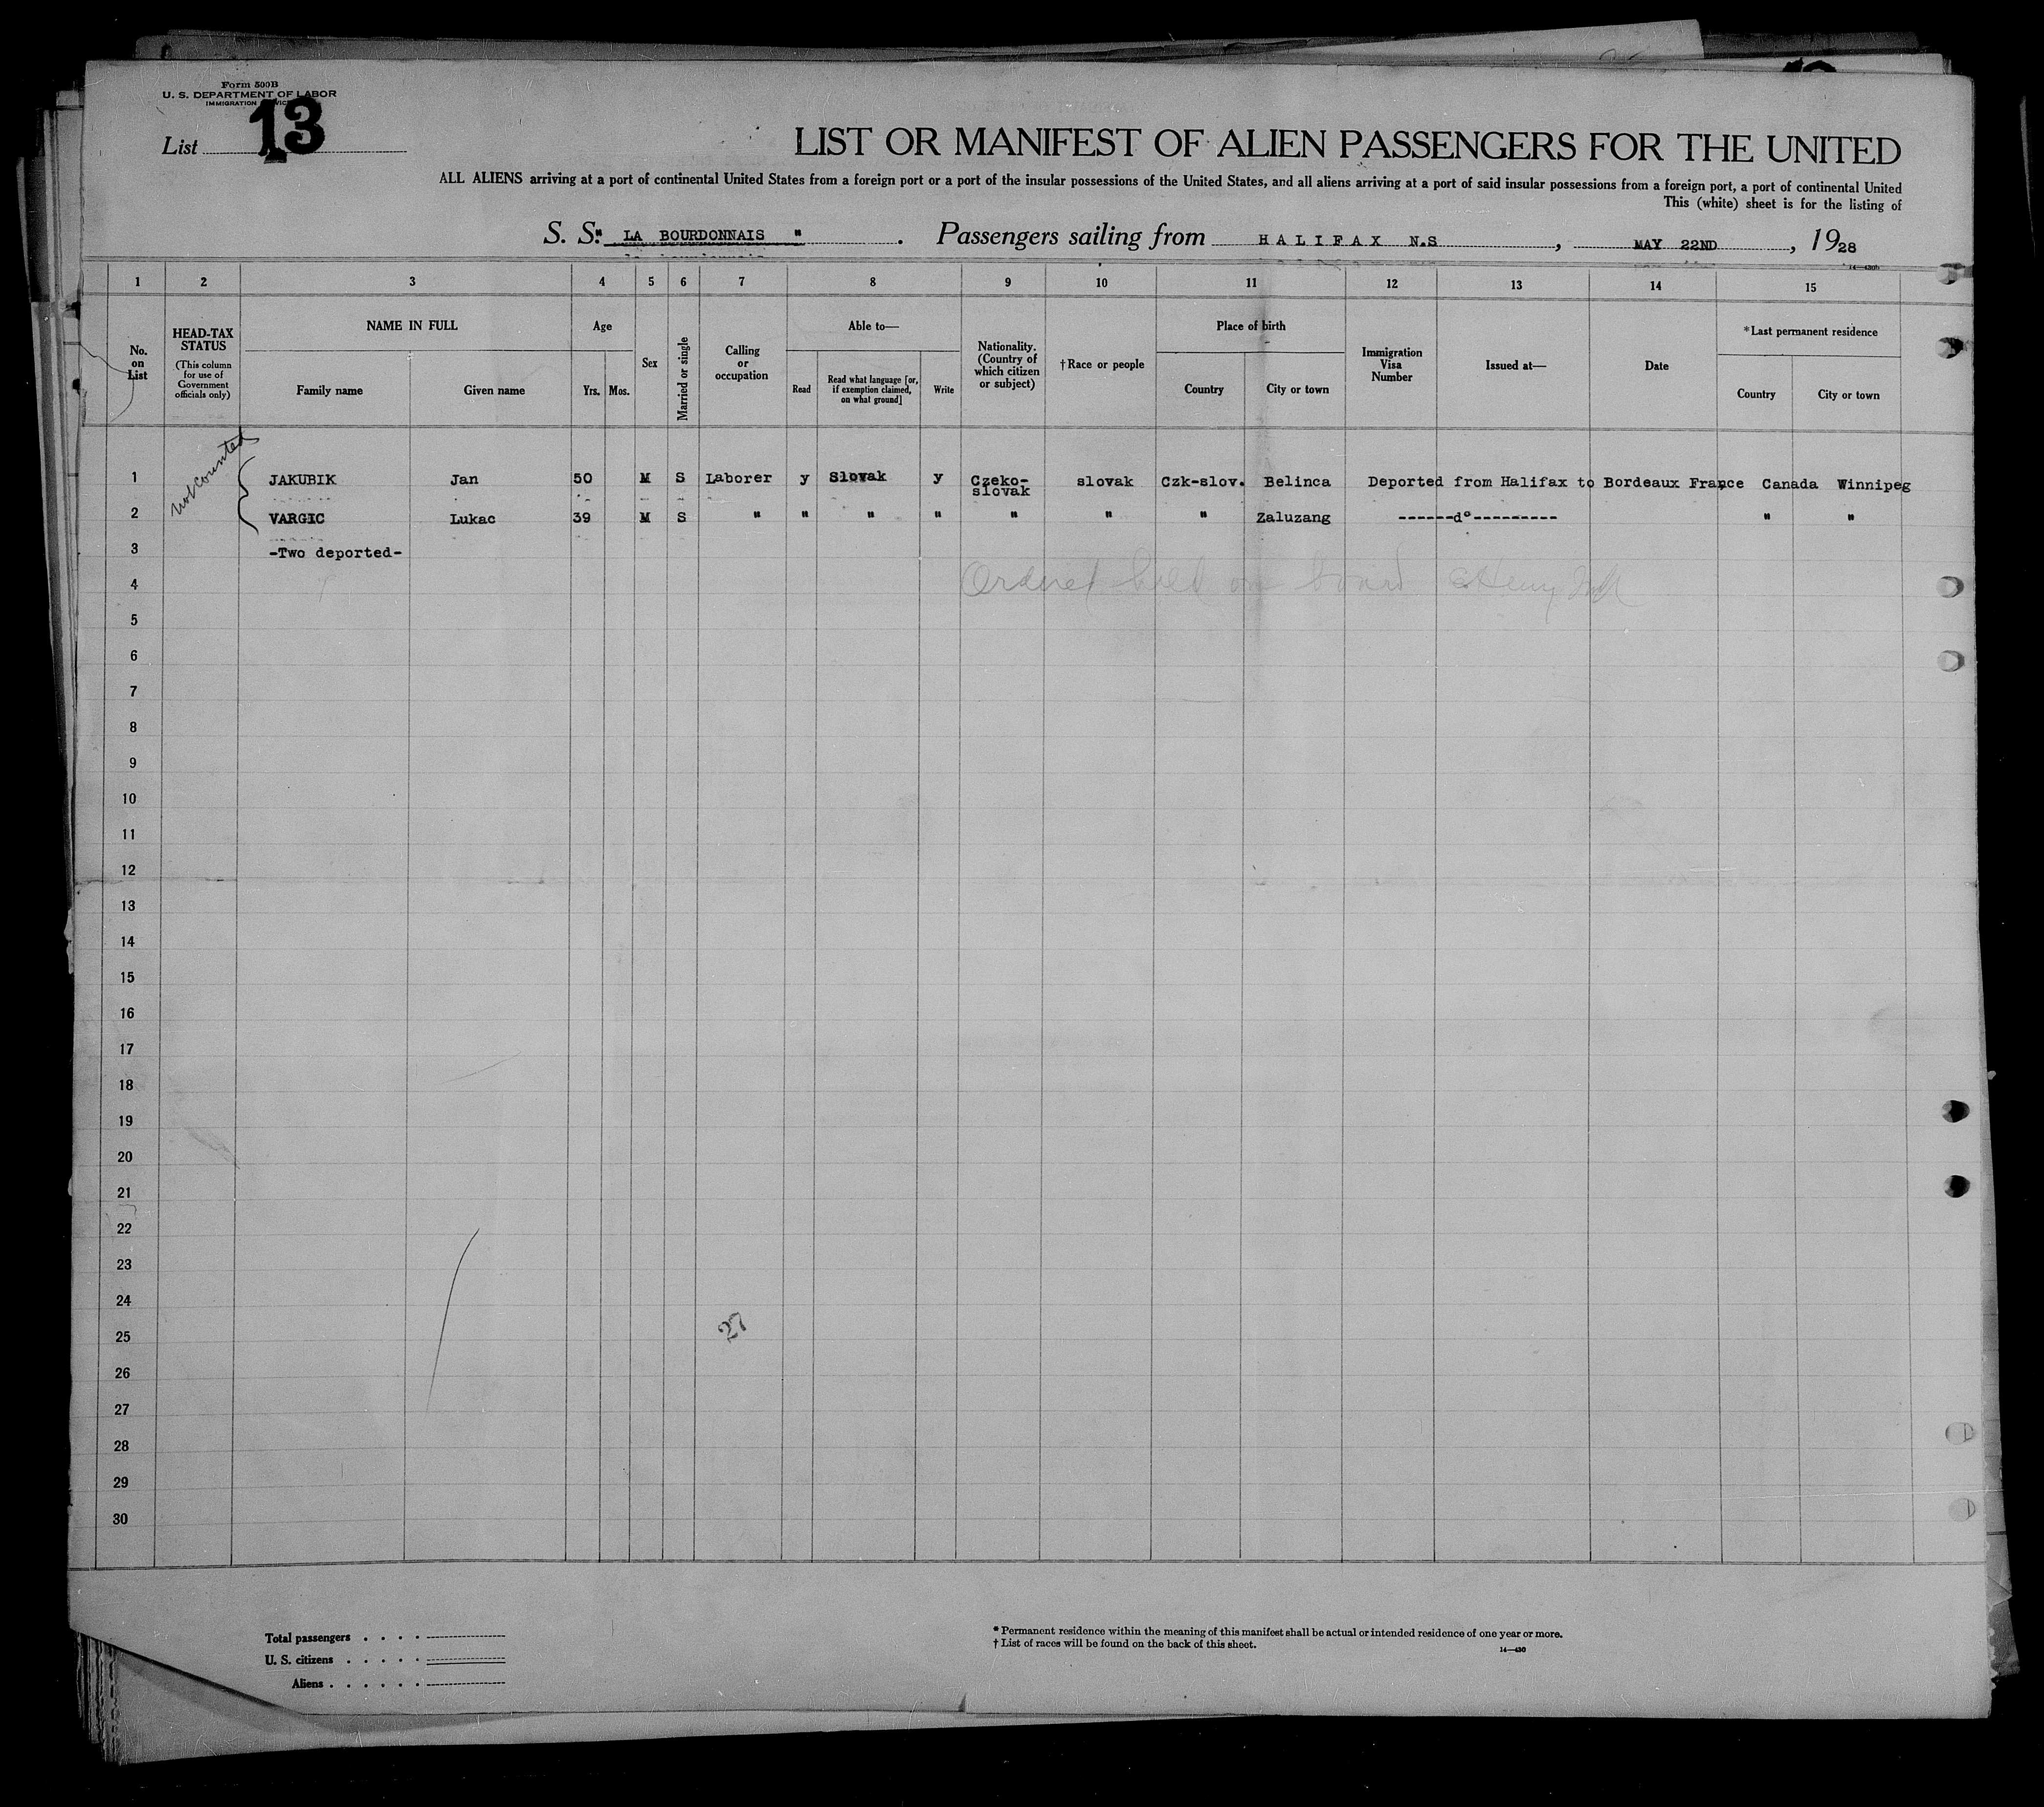 Form 500B
U. S. DEPARTMENT OF LABOR
IMMIGRATION
List 13
LIST OR MANIFEST OF ALIEN PASSENGERS FOR THE UNITED
ALL ALIENS arriving at a port of continental United States from a foreign port or a port of the insular possessions of the United States, and all aliens arriving at a port of said insular possessions from a foreign port, a port of continental United
This (white) sheet is for the listing of
S. S. " LA BOURDONNAIS " . Passengers sailing from HALIFAX N.S , MAY 22ND , 1928
1 2 3 4 5 6 7 8 9 10 11 12 13 14 15
No. on List
HEAD-TAX STATUS
(This column for use of Government officials only)
NAME IN FULL
Family name Given name
Age
Yrs. Mos.
Sex
Married or single
Calling or occupation
Able to—
Read
Read what language [or, if exemption claimed, on what ground]
Write
Nationality. (Country of which citizen or subject)
†Race or people
Place of birth
Country City or town
Immigration Visa Number
Issued at—
Date
*Last permanent residence
Country City or town
Not counted
1 JAKUBIK Jan 50 M S Laborer y Slovak y Czeko-slovak slovak Czk-slov. Belinca Deported from Halifax to Bordeaux France Canada Winnipeg
2 VARGIC Lukac 39 M S " " " " " " " Zaluzang ------d°--------- " "
3 -Two deported-
4 Ordered held on board
5
6
7
8
9
10
11
12
13
14
15
16
17
18
19
20
21
22
23
24
27
25
26
27
28
29
30
Total passengers . . . .
U. S. citizens . . . . .
Aliens . . . . . .
* Permanent residence within the meaning of this manifest shall be actual or intended residence of one year or more.
† List of races will be found on the back of this sheet.
14—430